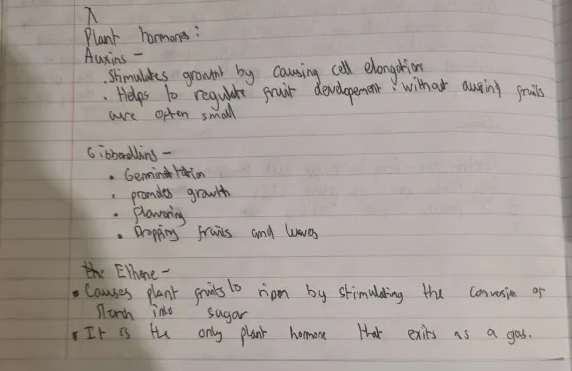 Plant hormones:
Auxins -
. Stimulates growth by causing cell elongation
. Helps to regulate fruit developement: without auxins fruits
are often small
Gibberellins -
• Germination
• promotes growth
• flowering
• Dropping fruits and leaves
the Ethene -
• Causes plant fruits to ripen by stimulating the conversion of
starch into sugar
• It is the only plant hormone that exits as a gas.